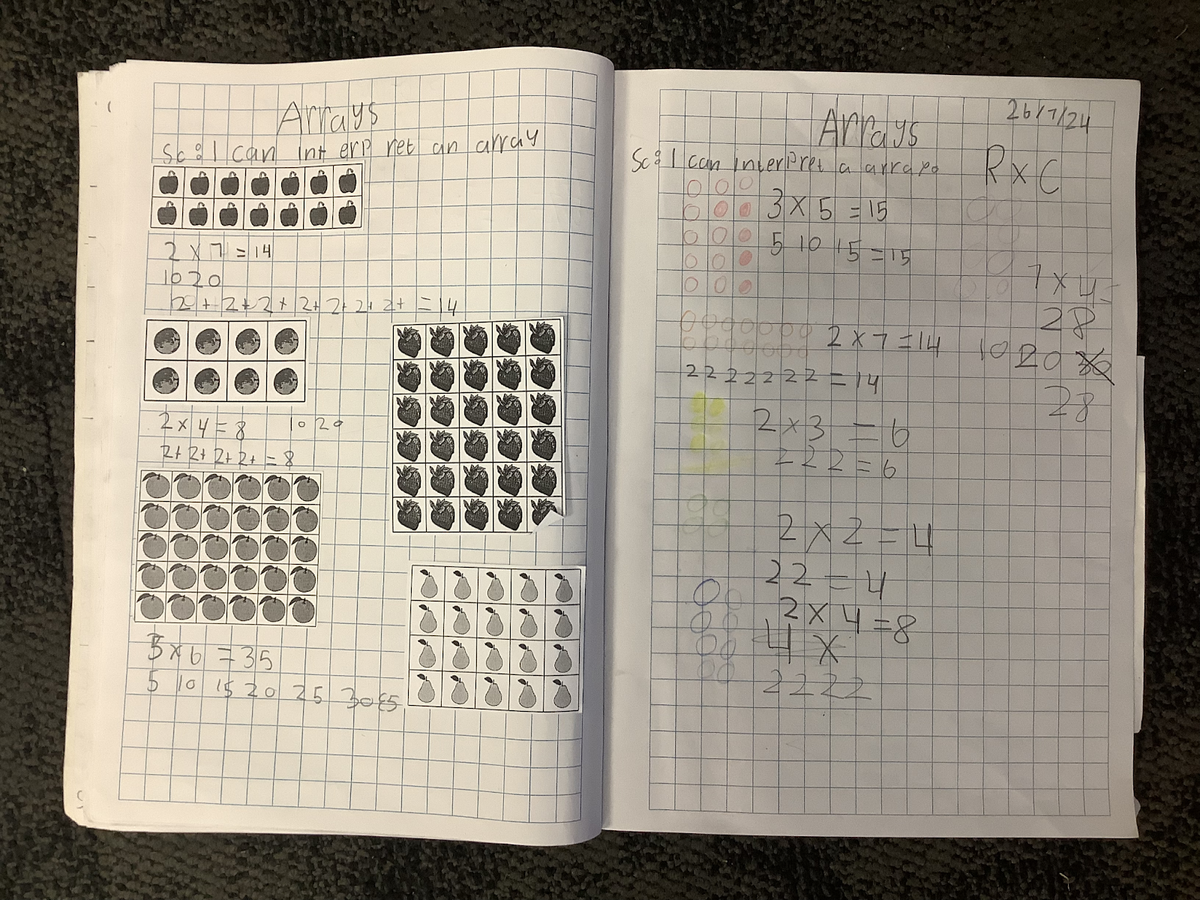 Arrays
Sc: I can interpret an array
2 x 7 = 14
10 20
2 + 2 + 2 + 2+ 2+ 2+ 2+ = 14
2 x 4 = 8 10 20
2+ 2+ 2+ 2+ = 8
5 x 6 = 35
5 10 15 20 25 30 35
26/7/24
Arrays
Sc: I can interpret a array
R x C
3 x 5 = 15
5 10 15 = 15
7 x 4 =
28
2 x 7 = 14
10 20 30
2 2 2 2 2 2 2 = 14
28
2 x 3 = 6
2 2 2 = 6
2 x 2 = 4
2 2 = 4
2 x 4 = 8
4 x
2 2 2 2